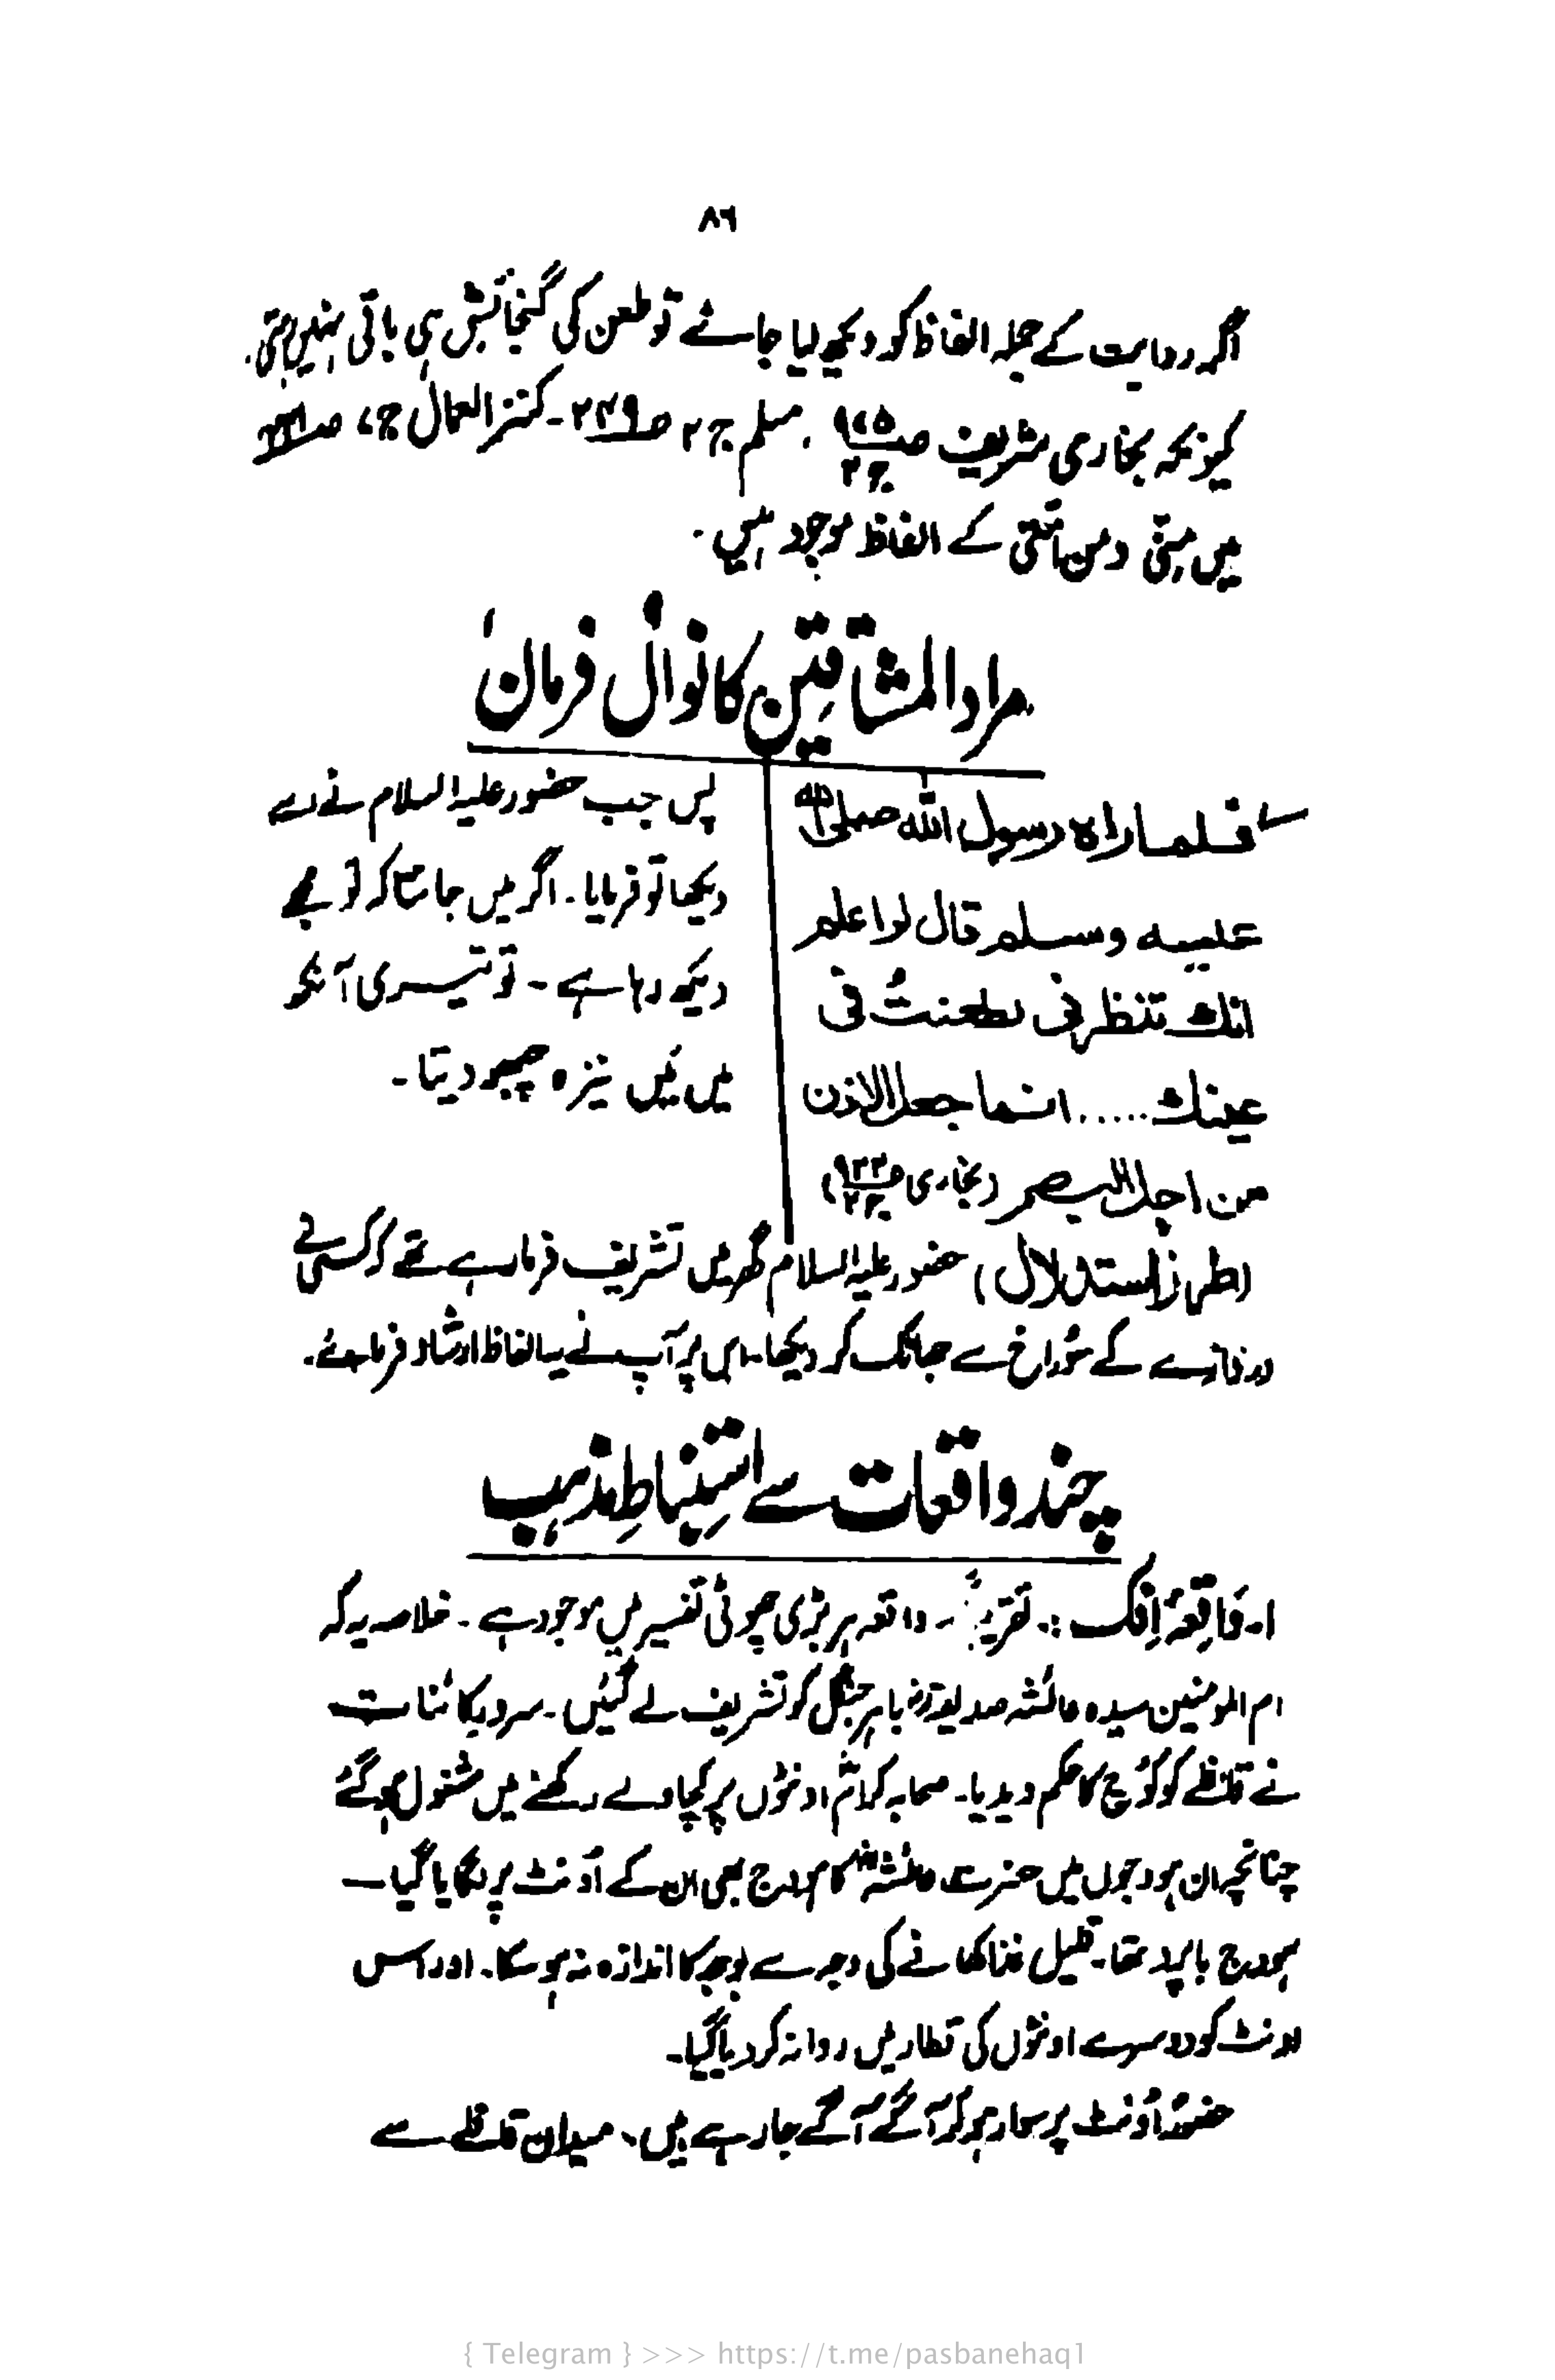 ۸۶
اگر روایت کے جملہ الفاظ کو دیکھ لیا جائے تو طعن کی گنجائش ہی باقی نہیں رہتی.
کیونکہ بخاری شریف صـ ۹۷۵ ج۲ ، مسلم ج ۲ صـ ۲۴۹ ۔ کنز العمال ج ۷، صـ
میں منی ومن امتی کے الفاظ موجود ہیں .
مراد المشتاقین کا نواں فرمان
فلما راه رسول الله صلى الله
عليه وسلم قال لو اعلم
انك تنظرني لطعنت في
عينك ..... انما جعل الاذن
من اجل البصر (بخاری صـ ۹۲۲ ج۲)
پس جب حضور علیہ السلام نے اسے
دیکھا تو فرمایا ۔ اگر میں جانتا کہ تو مجھے
دیکھ رہا ہے ۔ تو تیسری آنکھ
میں مَیں نیزہ چبھو دیتا ۔
(طرز استدلال) حضور علیہ السلام گھر میں تشریف فرما رہے تھے کہ کسی نے
دروازے کے سُوراخ سے جھانک کر دیکھا ۔ اس پر آپ نے یہ الفاظ ارشاد فرمائے.
چند واقعات سے استِنباطِ مذہب
۱ ۔ وَاقِعۂ اِفک :۔ تقریباً یہ واقعہ ہر بڑی چھوٹی تفسیر میں موجود ہے ۔ خلاصہ یہ کہ
ام المومنین سیدہ عائشہ صدیقہؓ باہر جنگل کو تشریف لے گئیں ۔ سرورِ کائنات
نے قافلے کو کُوچ کا حکم دیدیا ۔ صحابہ کرامؓ اونٹوں پر کجاوے رکھنے میں مشغول ہو گئے
چنانچہ ان ہودجوں میں حضرت عائشہؓ کا ہودج بھی ان کے اُونٹ پر لگایا گیا ۔
ہودج باپردہ تھا ۔ قلیل غذا کھانے کی وجہ سے بوجھ کا اندازہ نہ ہو سکا ۔ اور اس
اونٹ کو دوسرے اونٹوں کی قطار میں روانہ کر دیا گیا ۔
حضورؐ اُونٹ پر سوار ہو کر آگے آگے جا رہے ہیں ، میدان قافلے سے
{ Telegram } >>> https://t.me/pasbanehaq1